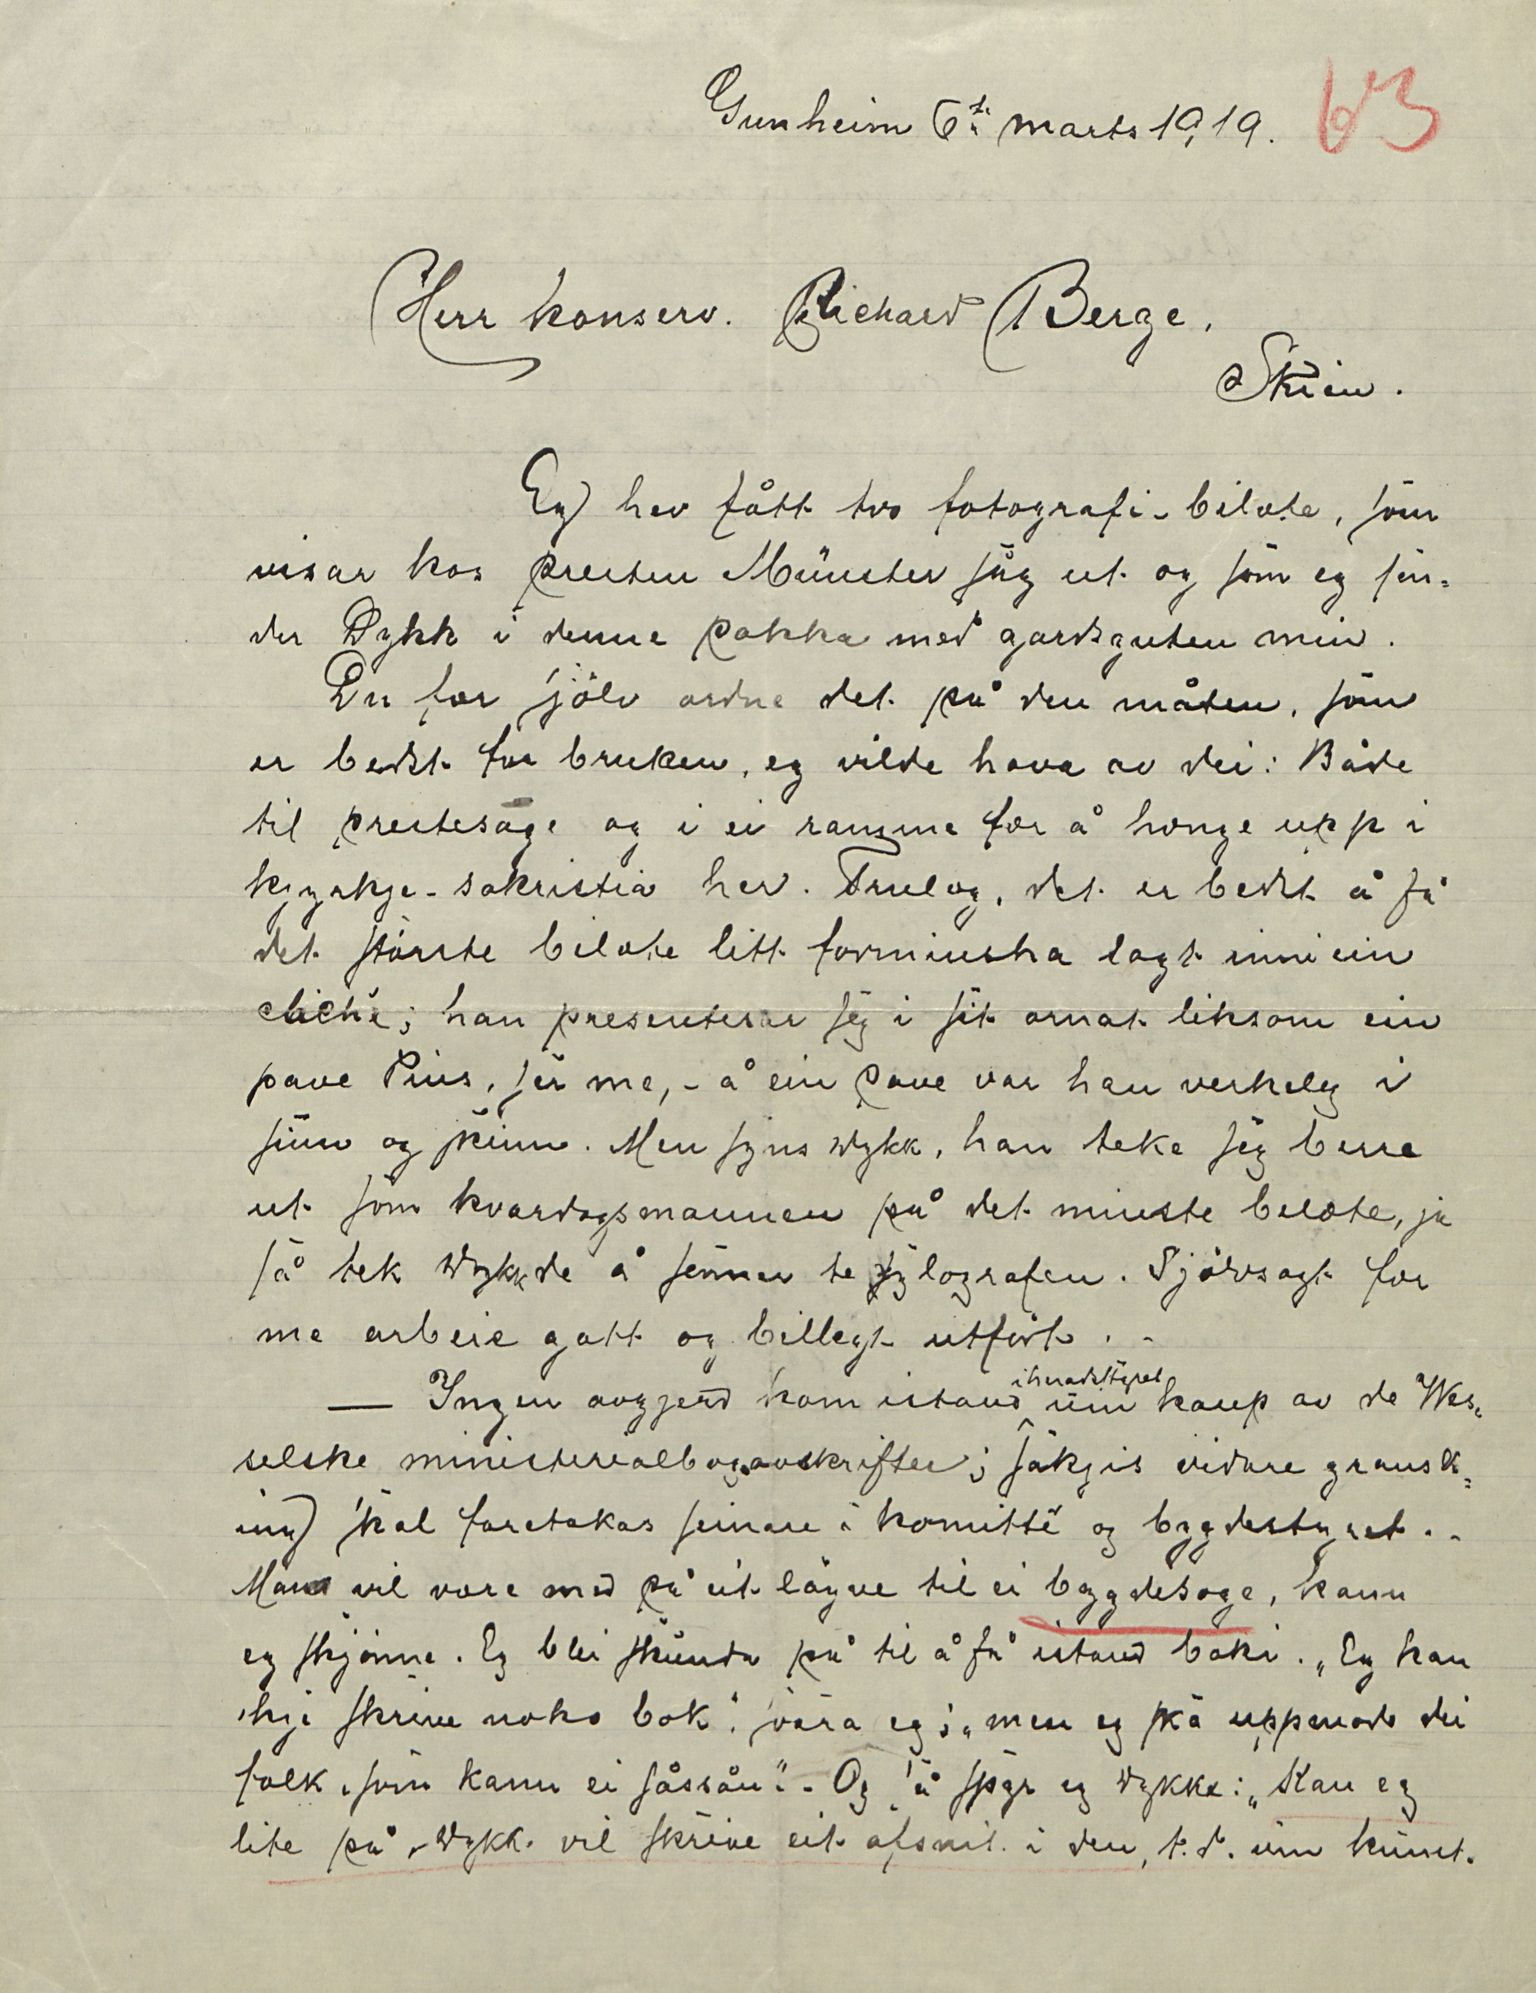 Gunheim 6te marts 1919. 63
Herr konserv. Rickard Berge,
Skien.
Eg hev fått tvo fotografi-bilæte, som
visar kos presten Münster såg ut og som eg sen-
der Dykk i denne pakka med gardsguten min.
Du fær sjölv ordne det på den måten, som
er bedst for bruken, eg vilde hava av dei: Både
til prestesoge og i ei ramme for å henge upp i
kjyrkje-sakristia her. Trulog, det er bedst å få
det störste bilæte litt forminska lagt inni ein
cliché; han presenterar seg i sit ornat liksom ein
pave Pius, ser me, - å ein pave var han verkeleg i
sinn og skinn. Men syns dykk, han teke seg berre
ut som kvardagsmannen på det minste bilæte, ja
så tek dykk de å sender te xylografen. Sjölvsagt fær
me arbeie godt og billegt utfört. -
— Ingen avgjerd kom istand i heradstyret um kaup av de Wes-
selske ministerialbogavskrifter; såkjis vidare gransk-
ing skal foretakas seinare i komitté og bygdestyret. -
Man vil vere med på eit löyve til ei bygdesoge, kann
eg skjönne. Eg blei skunda på til å få istand boki. "Eg kan
ikje skrive noko bok", svara eg; "men eg ska uppmode dei
folk, som kann ei såssån". - Og så spyr eg dykke: "Kan eg
lite på, dykk vil skrive eit afsnit i den, t.d. um kunst.